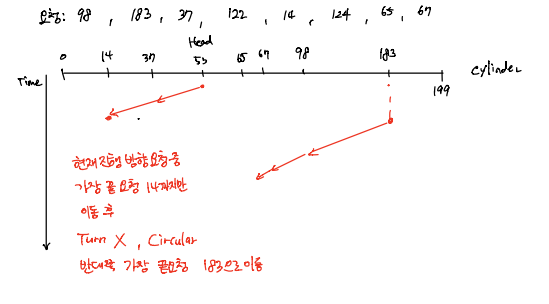 요청: 98, 183, 37, 122, 14, 124, 65, 67
Head
0 14 37 53 65 67 98 183 199
Cylinder
Time
현재 진행 방향 요청 중
가장 끝 요청 14까지만
이동 후
Turn X, Circular
반대쪽 가장 끝요청 183으로 이동